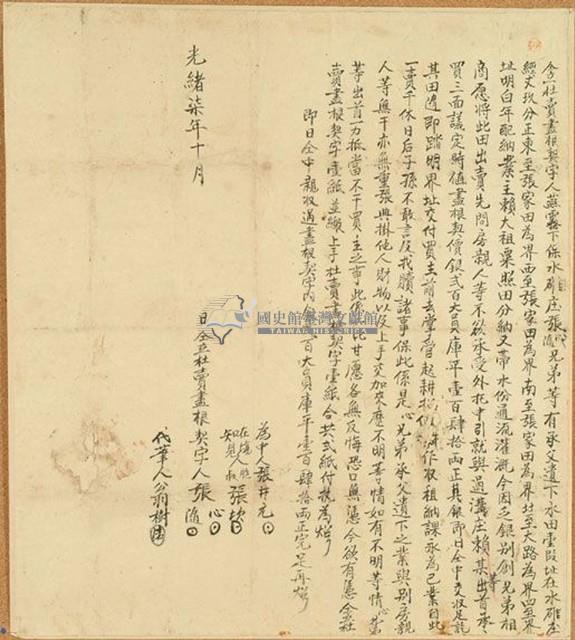 仝立杜賣盡根契字人燕霧下保水碓庄張心、隨兄弟等有承父遺下水田壹段址在水碓庄
經丈玖分正東至張家田為界西至張家田為界南至張家田為界北至大路為界四至界
址明白年配納業主賴大租粟照田分納又帶水份通流灌溉今因乏銀別創兄弟相
商愿將此田出賣先問房親人等不欲承受外托中引就與過溝庄賴其出首承
買三面議定時值盡根契價銀貳百大員庫平壹百肆拾兩正其銀即日仝中交收足訖
其田遂即踏明界址交付買主前去掌管起耕招佃耕作收租納課永為己業自此
一賣千休日后子孫不敢言及找贖諸事保此係是心兄弟承父遺下之業與別房親
人等無干亦無重張典掛他人財物以及上手交加來歷不明等情如有不明等情心等
等出首一力抵當不干買主之事此係二比甘愿各無反悔恐口無憑今欲有憑仝立杜
賣盡根契字壹紙並繳上手杜賣盡根契字壹紙合共弍紙付執為炤
即日仝中親收過盡根契字內銀貳百大員庫平壹百肆拾兩正完足再炤
為中張井元
在場胞
知見人叔張枝
光緒柒年十月　日仝立杜賣盡根契字人張心
隨
代筆人翁樹
國史館臺灣文獻館
TAIWAN HISTORICA